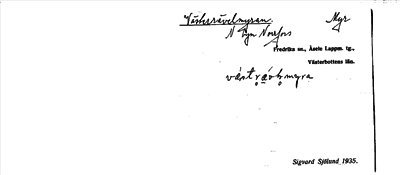 Västerrävelmyran. Myr
N Lyn Norrfors
Fredrika sn., Åsele Lappm. tg.,
Västerbottens län.
västrävḷmyra
Sigvard Sjölund 1935.